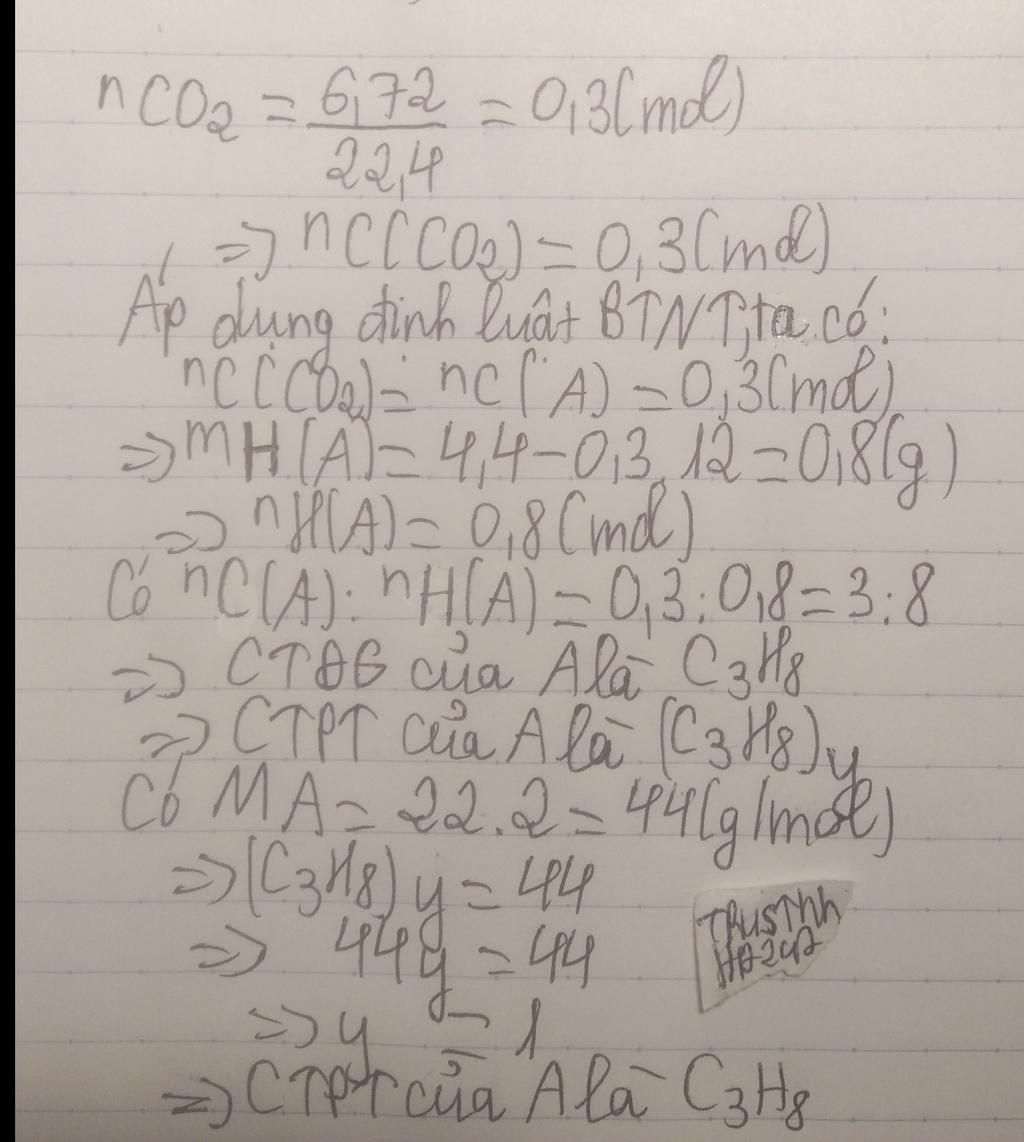 nCO₂ = 6,72/22,4 = 0,3(mol)
=> nC(CO₂) = 0,3(mol)
Áp dụng định luật BTNT, ta có:
nC(CO₂) = nC(A) = 0,3(mol)
=> mH(A) = 4,4 - 0,3.12 = 0,8(g)
=> nH(A) = 0,8(mol)
Có nC(A) : nH(A) = 0,3 : 0,8 = 3 : 8
=> CTĐG của A là C₃H₈
=> CTPT của A là (C₃H₈)y
Có MA = 22.2 = 44(g/mol)
=> (C₃H₈)y = 44
=> 44y = 44
=> y = 1
=> CTPT của A là C₃H₈